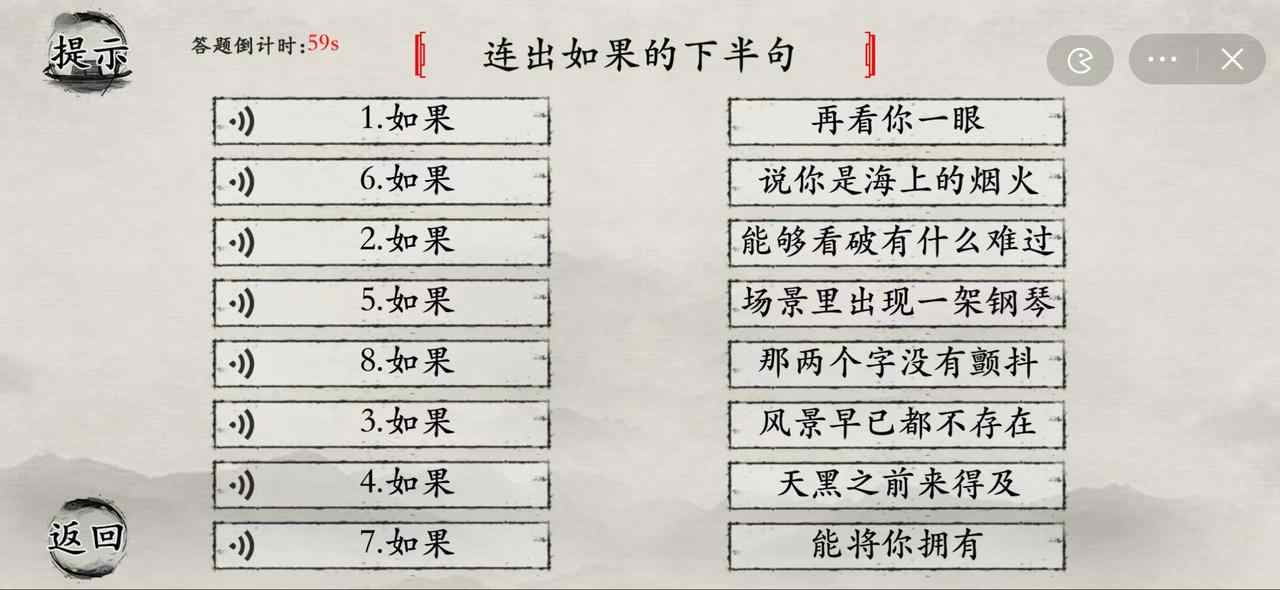 提示
答题倒计时:59s
连出如果的下半句
1.如果
再看你一眼
6.如果
说你是海上的烟火
2.如果
能够看破有什么难过
5.如果
场景里出现一架钢琴
8.如果
那两个字没有颤抖
3.如果
风景早已都不存在
4.如果
天黑之前来得及
7.如果
能将你拥有
返回